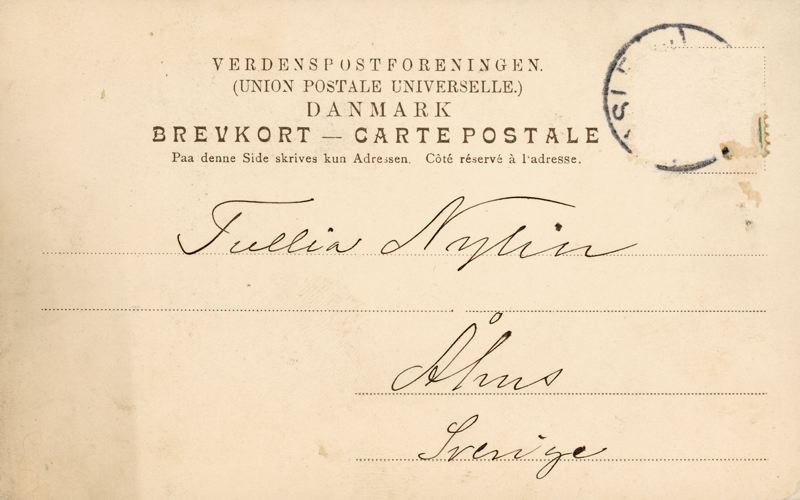 VERDENSPOSTFORENINGEN.
(UNION POSTALE UNIVERSELLE.)
DANMARK
BREVKORT — CARTE POSTALE
Paa denne Side skrives kun Adressen. Côté réservé à l'adresse.
Tullia Nylin
Åhus
Sverige